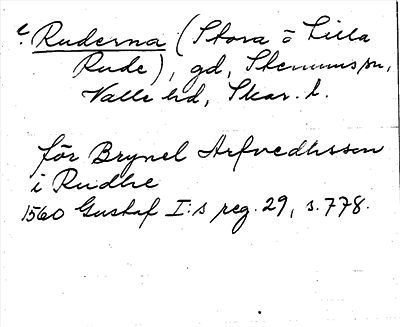 t. Ruderna (Stora o Lilla
Rude), gd, Stenums sn,
Valle hd, Skar. l.
för Brynel Arfvedhsson
i Rudhe
1560 Gustaf I:s reg. 29, s. 778.